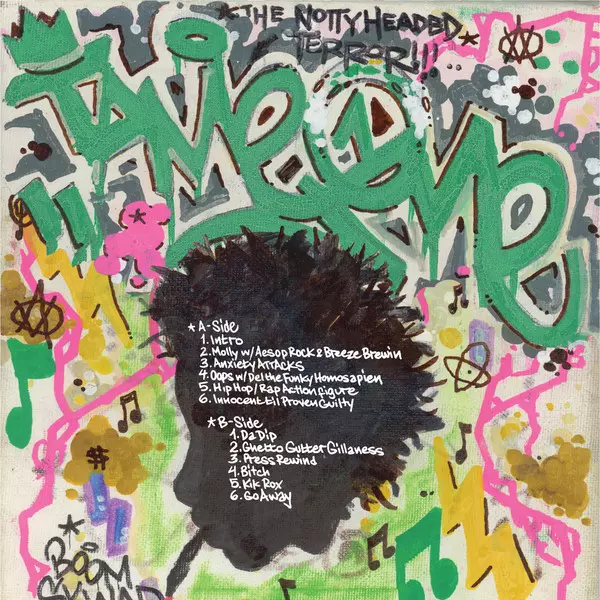 *THE NOTTYHEADED*
TERROR!!!
TAME ONE
*A-Side
1. Intro
2. Molly w/ Aesop Rock & Breeze Brewin
3. Anxiety Attacks
4. Oops w/ Del the Funky Homosapien
5. Hip Hop/Rap Action figure
6. Innocent til Proven Guilty
*B-Side
1. Da Dip
2. Ghetto Gutter Gillaness
3. Press Rewind
4. Bitch
5. Kik Rox
6. Go Away
*BOOM
SKWAD